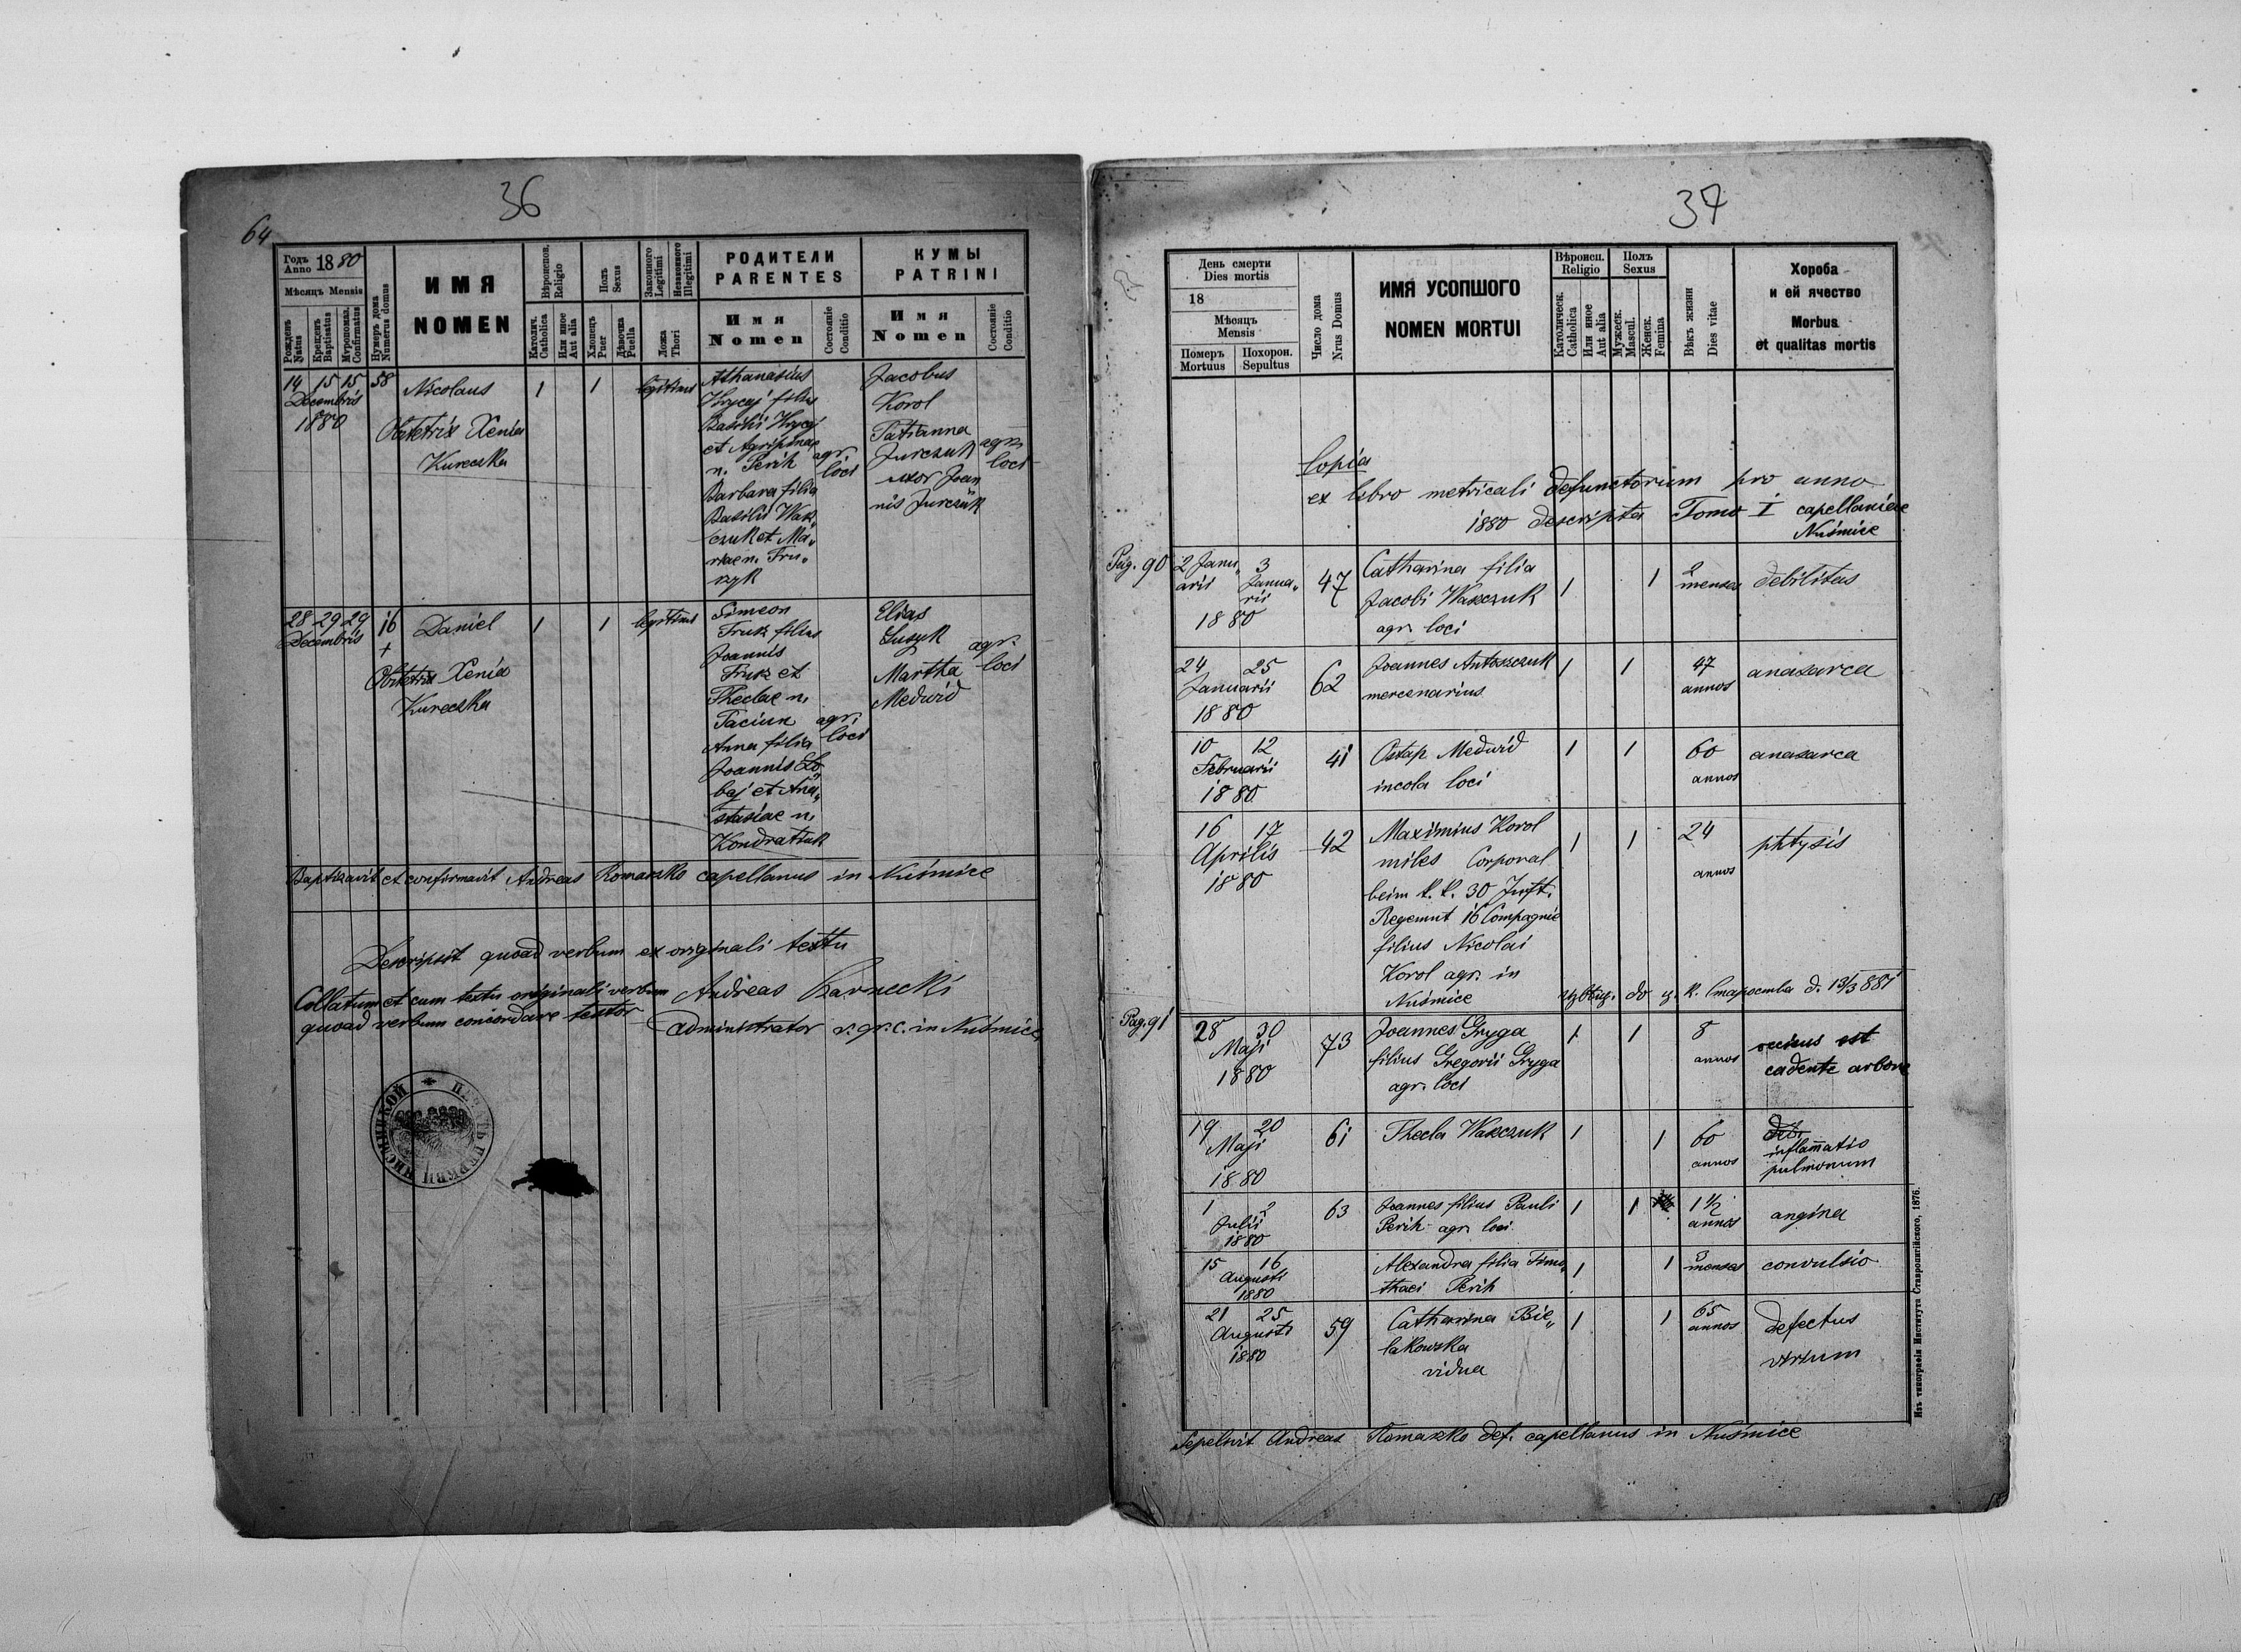 36
64
Годъ Anno 1880
Мѣсяцъ Mensis
Рожденъ Natus
Крещенъ Baptisatus
Мѵропомаз. Confirmatus
Нумеръ дома Numerus domus
ИМЯ
NOMEN
Вѣроиспов. Religio
Католич. Catholica
Или иное Aut alia
Полъ Sexus
Хлопецъ Puer
Дѣвочка Puella
Законного Legitimi
Незаконного Illegitimi
Ложа Thori
РОДИТЕЛИ
PARENTES
Имя
Nomen
Состояніе Conditio
КУМЫ
PATRINI
Имя
Nomen
Состояніе Conditio
14 15 15 58
Decembris
1880
Nicolaus
Obstetrix Xenia
Kureczka
1 1 legitimus
Athanasius
Hrycej filius
Basilii Hrycej
et Agripinae
n. Perih
Barbara filia
Basilii Wasz„
czuk et Ma„
riae n. Fru„
zyk
agr. loci
Jacobus
Korol
Tatianna
Jurczuk
uxor Joan
nis Jurczuk
agr. loci
28 29 29 16
Decembris +
Daniel
Obstetrix Xenia
Kureczka
1 1 legitimus
Simeon
Fruz filius
Joannis
Fruz et
Theclae n.
Taciun
Anna filia
Joannis Lo„
baj et Ana„
stasiae n.
Kondratiuk
agr. loci
Elias
Suszyk
Martha
Medwid
agr. loci
Baptizavit et confirmavit Andreas Romaszko capellanus in Nuśmice
Descripsit quoad verbum ex originali textu
Andreas Barnecki
administrator r. gr. c. in Nuśmice
Collatum et cum textu originali verbum
quoad verbum concordare testor
ПЕЧАТЬ ЦЕРКВИ
37
День смерти
Dies mortis
18
Мѣсяцъ
Mensis
Померъ Mortuus
Похорон. Sepultus
Число дома
Nrus Domus
ИМЯ УСОПШОГО
NOMEN MORTUI
Вѣроисп. Religio
Католическ. Catholica
Или иное Aut alia
Полъ Sexus
Мужеск. Mascul.
Женск. Femina
Вѣкъ жизни
Dies vitae
Хороба
и ей ячество
Morbus
et qualitas mortis
Copia
ex libro metricali defunctorum pro anno
1880 descripta Tomo I capellaniae
Nuśmice
Pag. 90
2 Janu„ 3 Janua„
arii rii
1880
47
Catharina filia
Jacobi Waszczuk
agr. loci
1 1 2 menses debilitas
24 25
Januarii
1880
62
Joannes Antoszczuk
mercenarius
1 1 47 annos anasarca
10 12
Februarii
1880
41
Ostap Medwid
incola loci
1 1 60 annos anasarca
16 17
Aprilis
1880
42
Maximius Korol
miles Corporal
beim k. k. 30 Inft.
Regemnt 16 Compagnie
filius Nicolai
Korol agr. in
Nuśmice
1 1 24 annos phtysis
до ц. к. Староства д. 13/3 881
Pag. 91
28 30
Maji
1880
73
Joannes Gryga
filius Gregorii Gryga
agr. loci
1 1 8 annos
occisus est
cadente arbore
19 20
Maji
1880
61
Thecla Waszczuk
1 1 60 annos
inflammatio
pulmonum
1 2
Julii
1880
63
Joannes filius Pauli
Perih agr. loci
1 1 1 1/2 annos angina
15 16
Augusti
1880
Alexandra filia Timo„
thaei Perih
1 1 3 menses convulsio
21 25
Augusti
1880
59
Catharina Bie„
lakowska
vidua
1 1 65 annos
defectus
virium
Sepelivit Andreas Romaszko def. capellanus in Nuśmice
Изъ типографіи Института Ставропигійского, 1876.